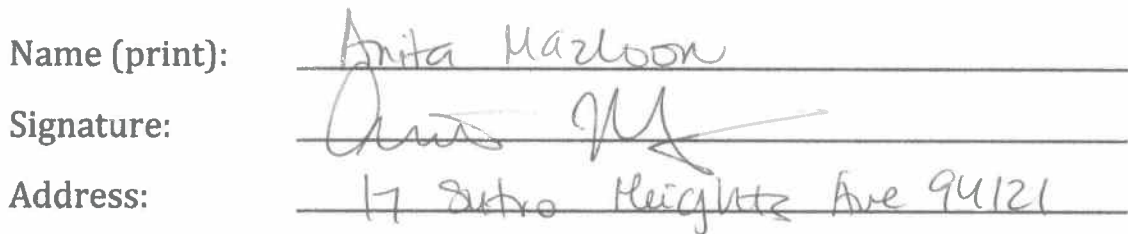 Name (print): Anita Mazloom
Signature:
Address: 17 Sutro Heights Ave 94121